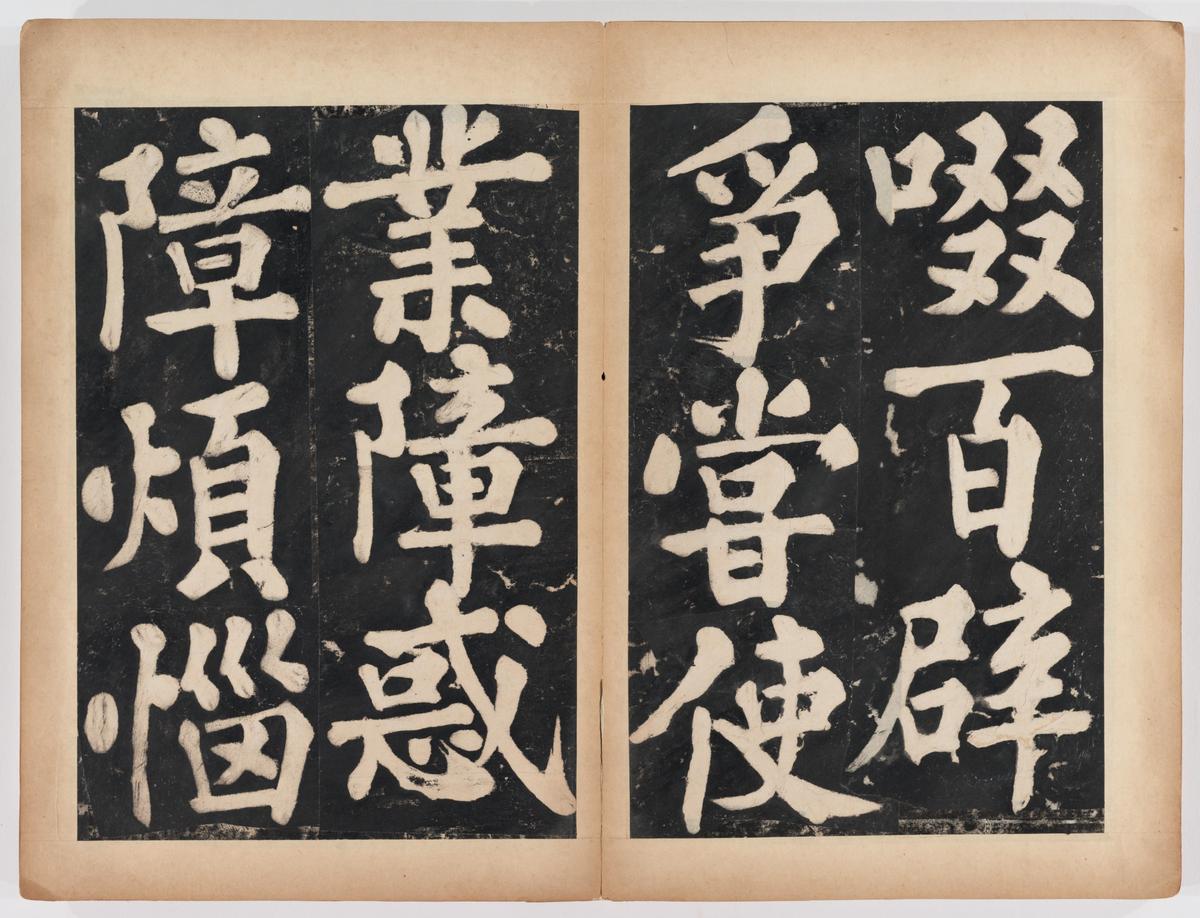 啜百辟
爭甞使
業障惑
障煩惱